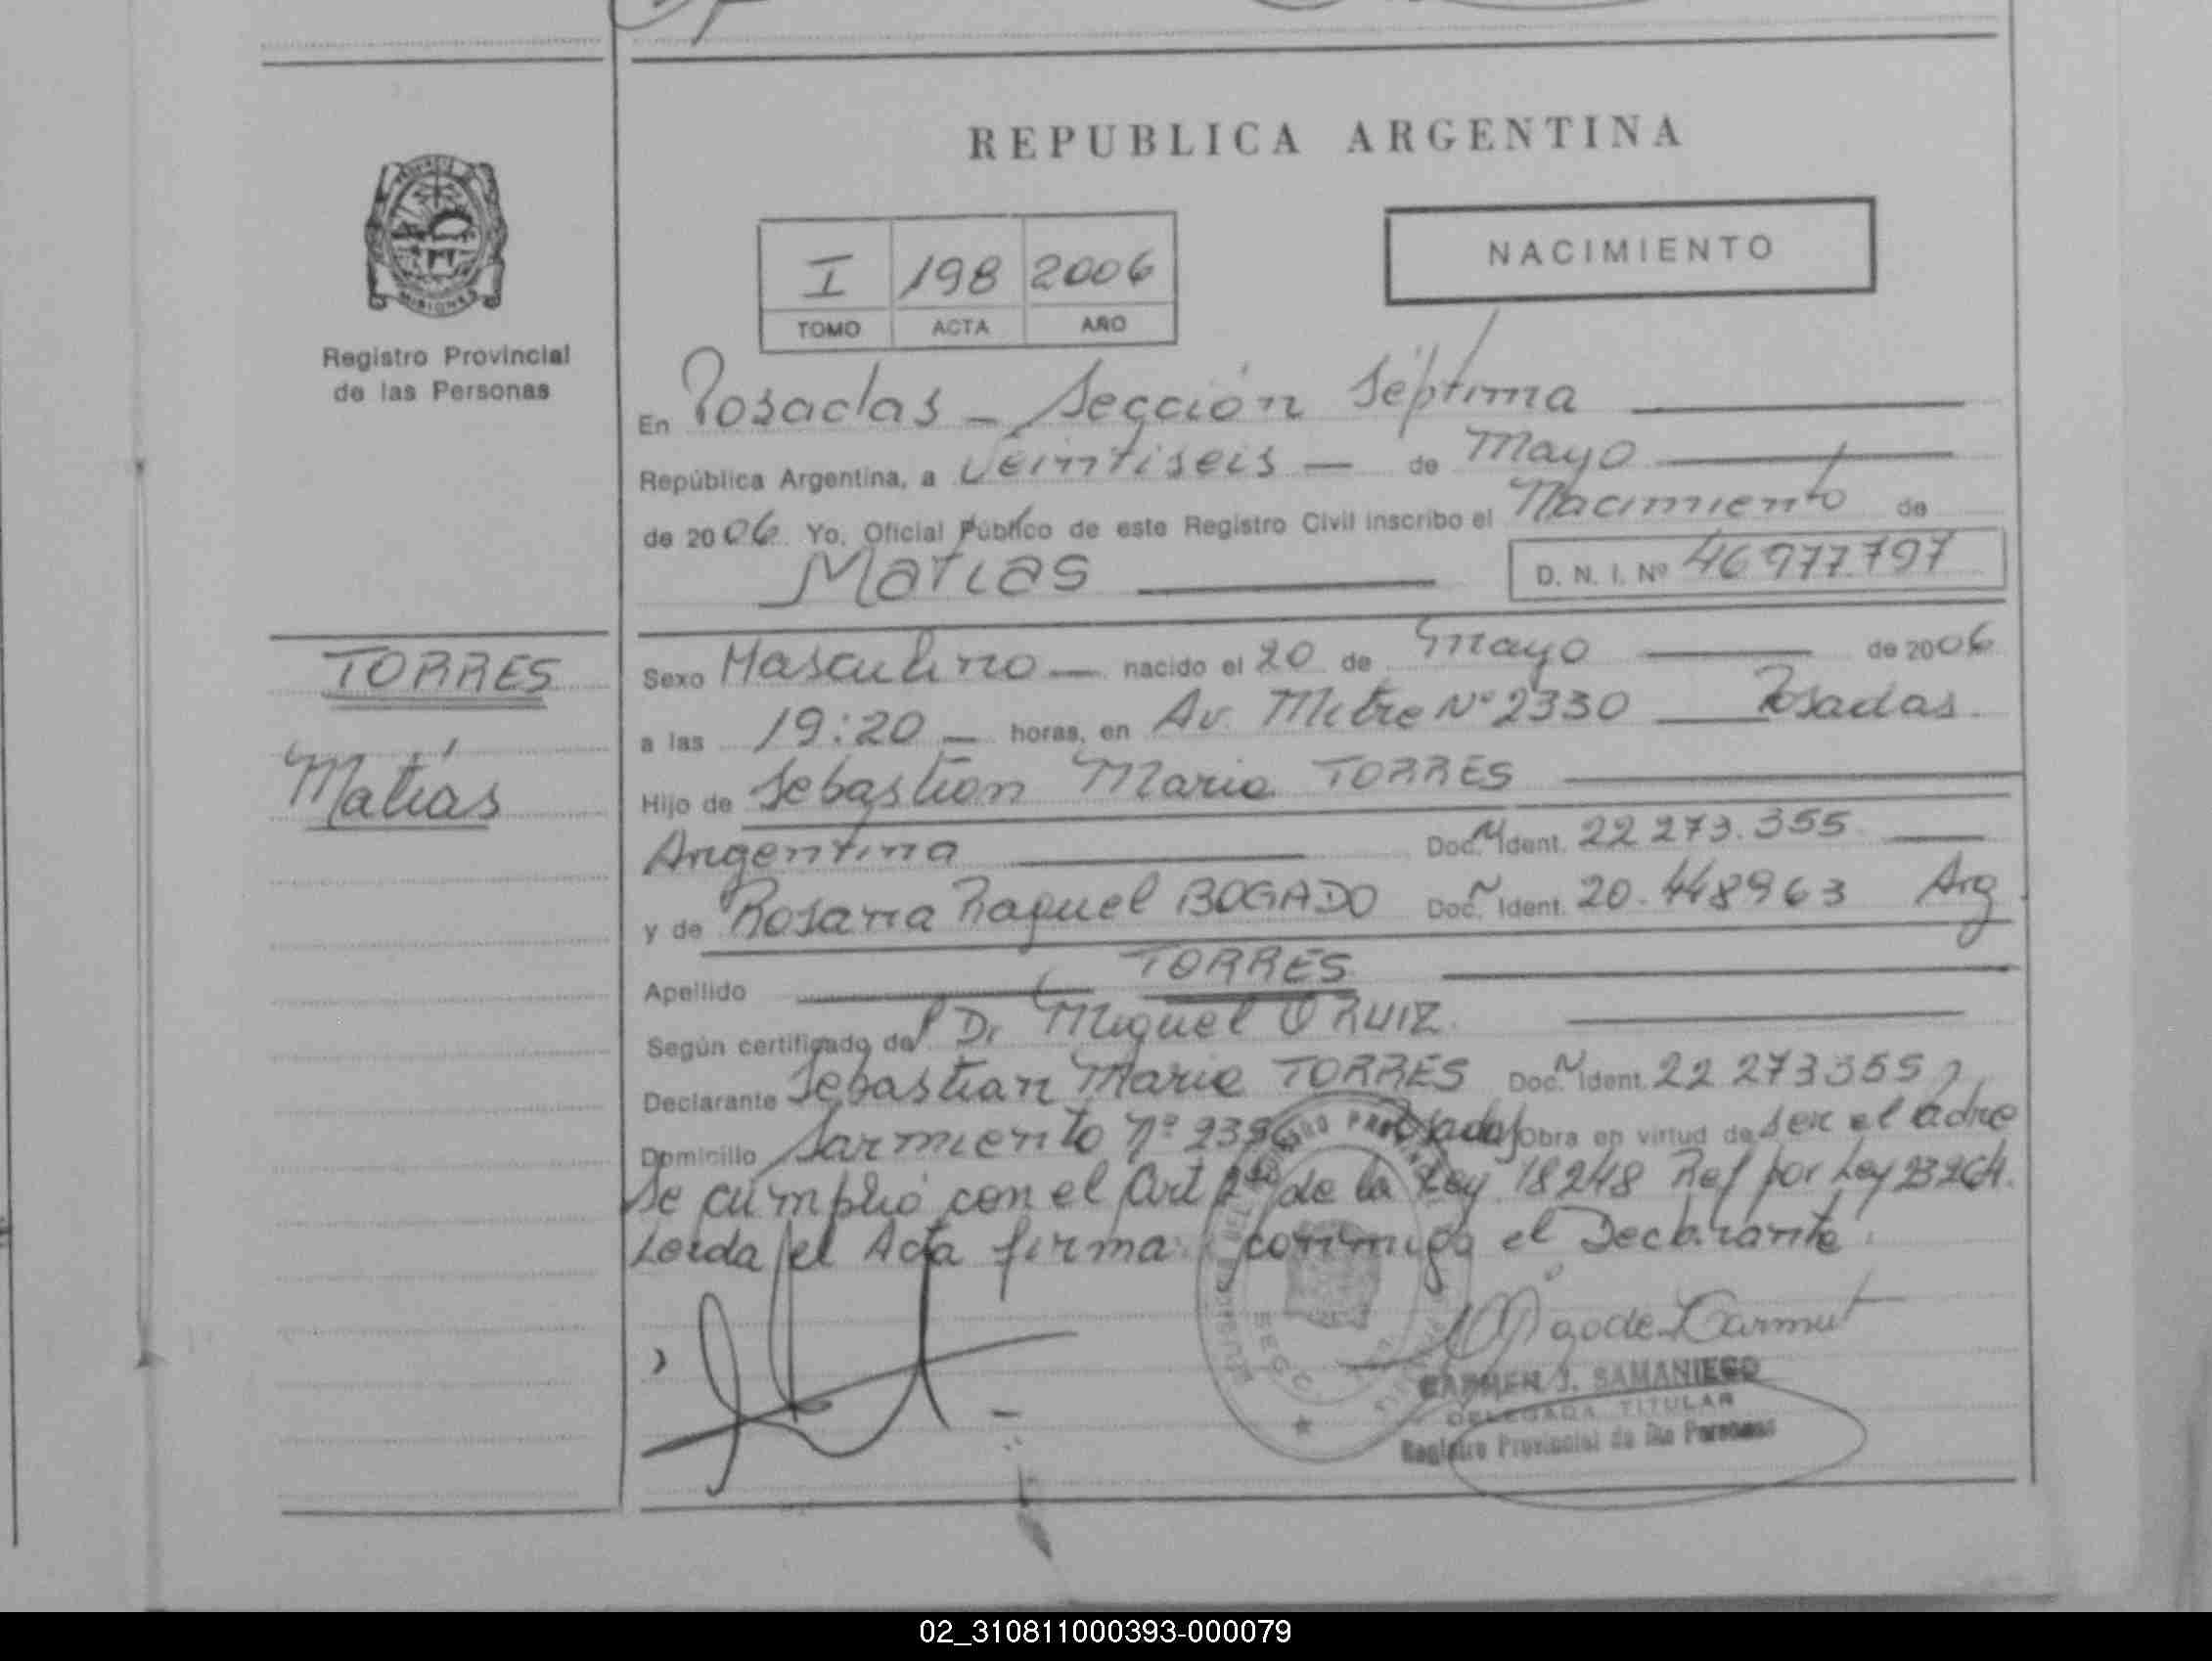 REPUBLICA ARGENTINA
NACIMIENTO
I 198 2006
TOMO ACTA AÑO
Registro Provincial
de las Personas
MISIONES
TORRES
Matías
En Posadas - Sección Séptima
República Argentina, a veintiseis — de Mayo
de 2006 Yo, Oficial Público de este Registro Civil inscribo el Nacimiento de
Matías
D. N. I. Nº 46.977.797
Sexo Masculino — nacido el 20 de Mayo de 2006
a las 19:20 — horas, en Av. Mitre Nº 2330 Posadas.
Hijo de Sebastian Mario TORRES
Argentina Doc. Ident. 22 273.355
y de Rosana Raquel BOGADO Doc. Ident. 20.448963 Arg
Apellido TORRES
Según certificado del Dr Miguel O RUIZ.
Declarante Sebastian Mario TORRES Doc. Ident. 22 273355
Domicilio Sarmiento Nº Posadas Obra en virtud de ser el Padre
Se cumplió con el Art 2do de la Ley 18248 Ref por Ley 23264.
Leida el Acta firma conmigo el Declarante.
CARMEN J. SAMANIEGO
DELEGADA TITULAR
Registro Provincial de las Personas
02_310811000393-000079